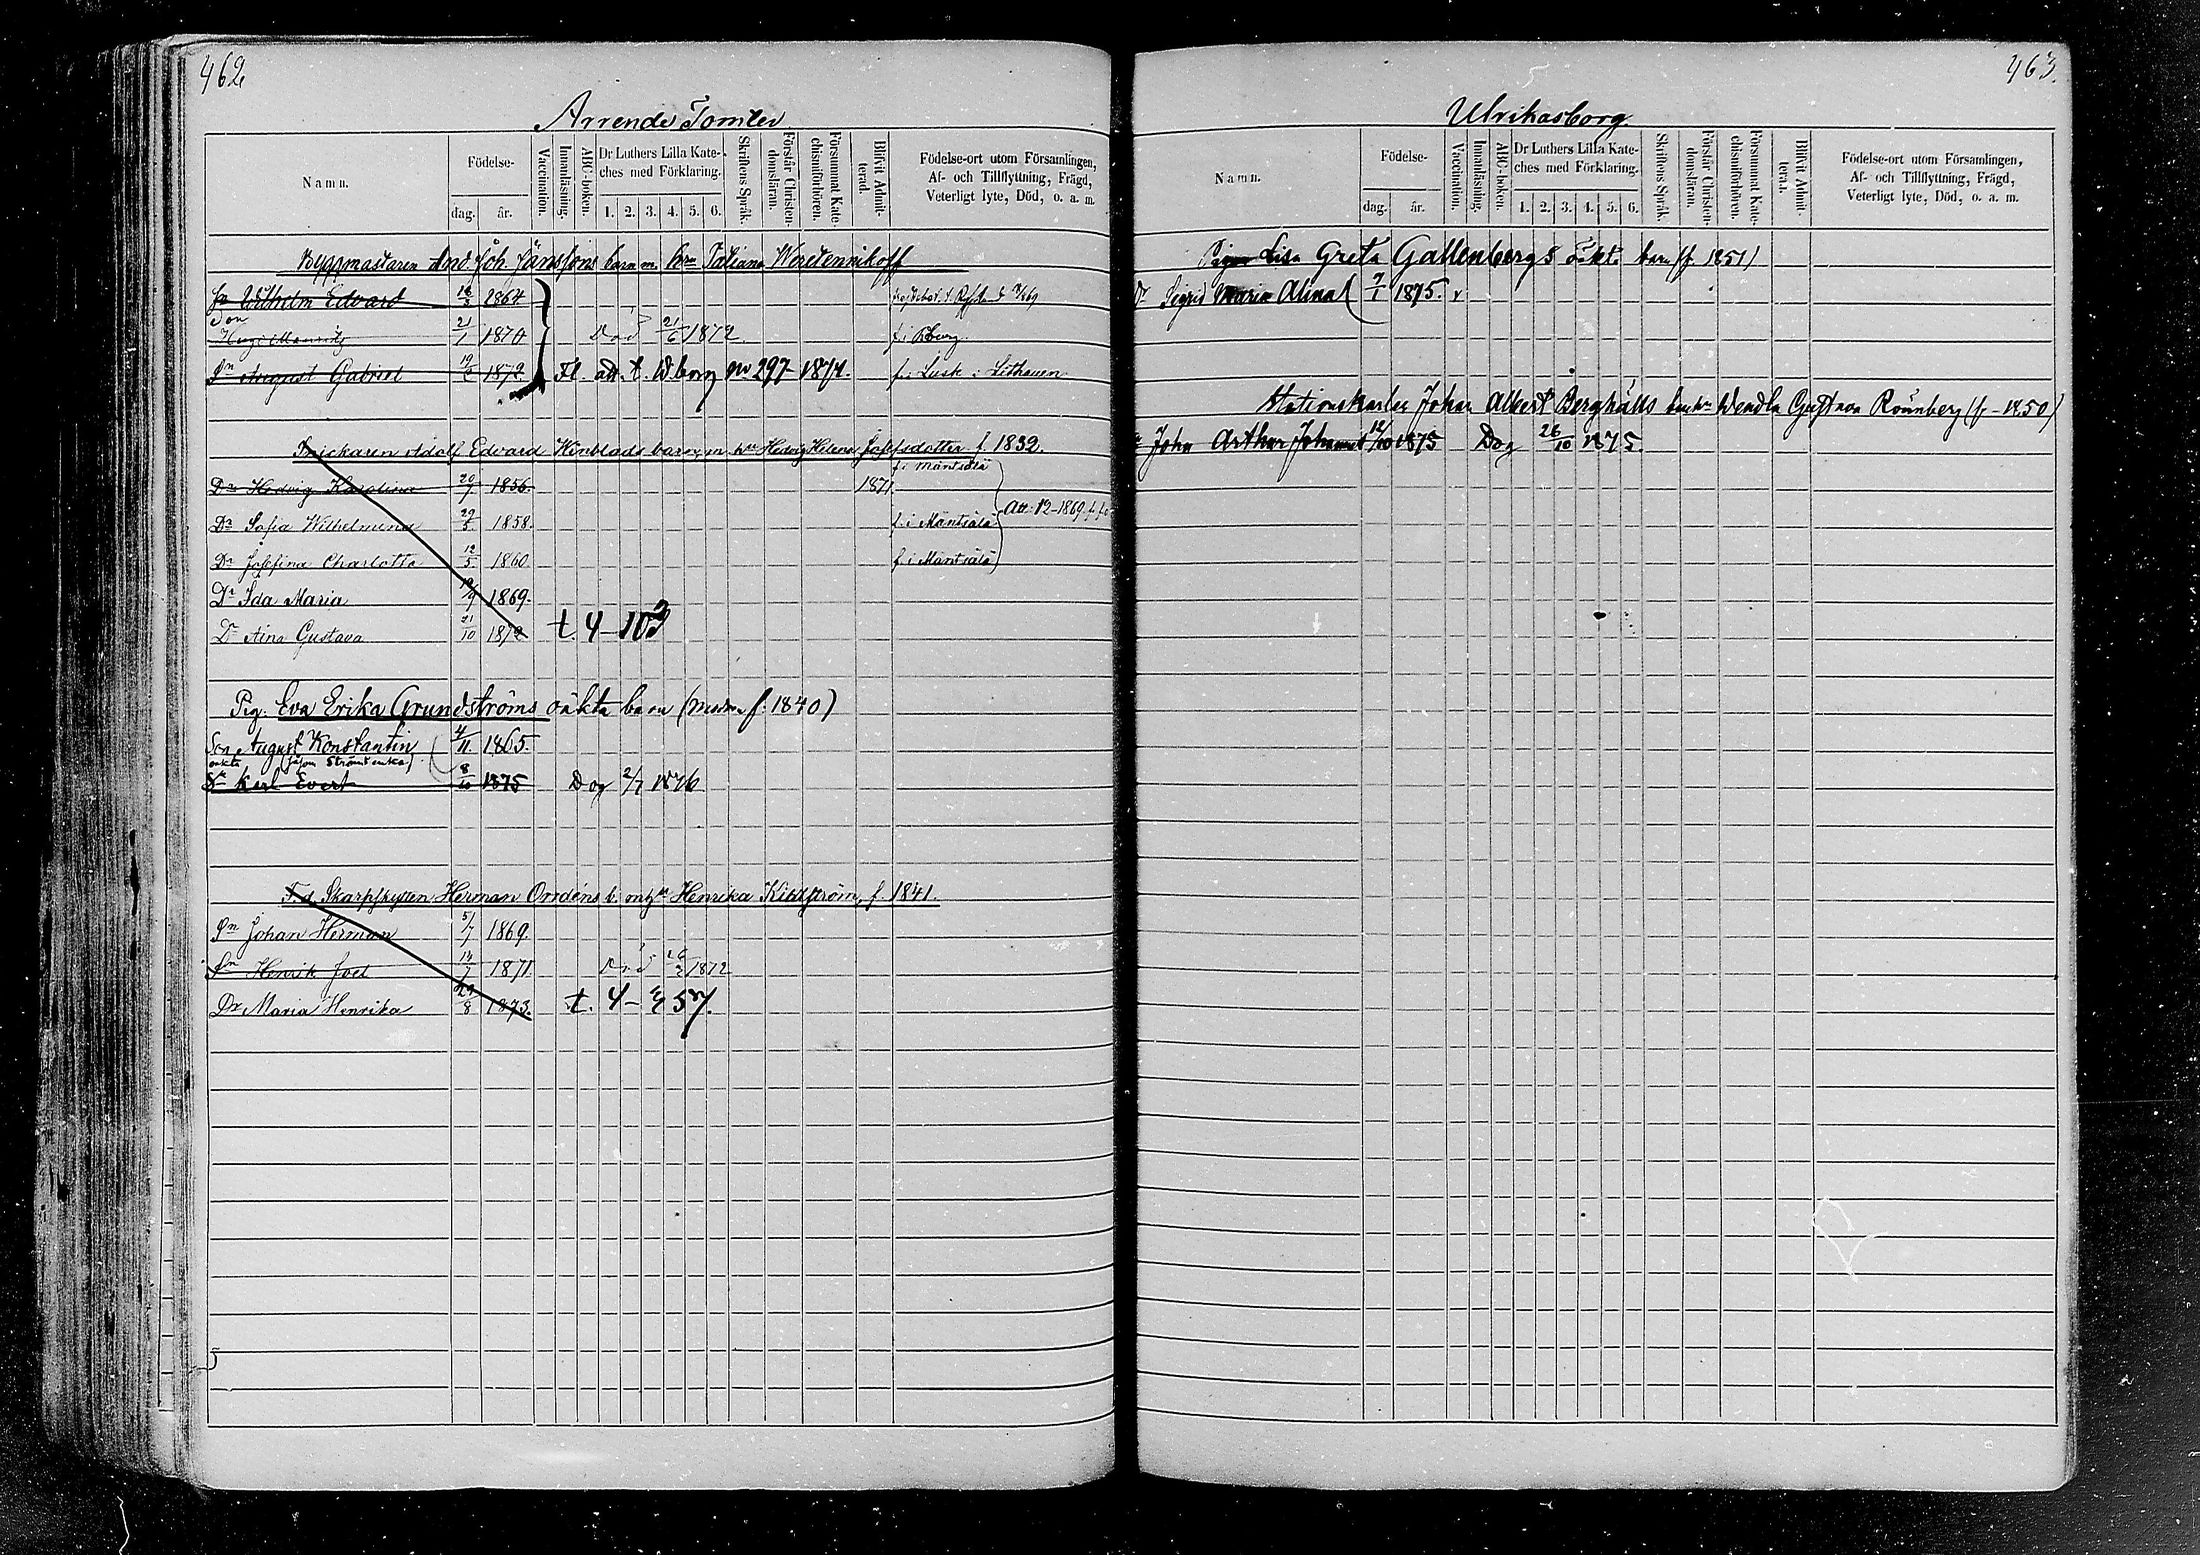 462
Arrende Tomter
Namn. Födelse- dag. år. Vaccination. Innanläsning. ABC-boken. Dr Luthers Lilla Kateches med Förklaring. 1. 2. 3. 4. 5. 6. Skriftens Språk. Förstår Christendomsläran. Försummat Katechismiförhören. Blifvit Admitterad. Födelse-ort utom Församlingen, Af- och Tillflyttning, Frägd, Veterligt lyte, Död, o. a. m.
Byggmästaren And. Joh. Jänssons barn m. hru Tatiana
Sn Wilhelm Edvard 1864
Son Hugo Mauritz 21/1 1870 Död 21/6 1872
Sn August Gabriel 19/2 1872 Fl. att. t. Wborg no 297 1874. f. i Lusk i Lithauen
Adolf Edvard Winblads barn m. hru Hedvig Helena Josefsdotter f. 1832.
f. i Mäntsälä
Dr Hedvig Karolina 20/7 1856. 1871
Dr Sofia Wilhelmina 29/5 1858. f. i Mäntsälä
Dr Josefina Charlotta 12/5 1860 f. i Mäntsälä
Dr Ida Maria 19/9 1869.
Dr Aina Gustava 21/10 1872 t. 4-103
Pig. Eva Erika Grundströms oäkta barn (modren f. 1840)
Son August Konstantin 4/11 1865.
oäkta
Sn Karl Evert 8/10 1875 Dog 2/7 1876
F.d. Skarpskytten Herman Orrdéns b. m. h. Henrika f. 1841.
Sn Johan Herman 5/7 1869.
Sn Henrik Joel 14/7 1871 Död 1872
Dr Maria Henrika 29/8 1873. t. 4-
463.
Ulrikasborg
Namn. Födelse- dag. år. Vaccination. Innanläsning. ABC-boken. Dr Luthers Lilla Kateches med Förklaring. 1. 2. 3. 4. 5. 6. Skriftens Språk. Förstår Christendomsläran. Försummat Katechismiförhören. Blifvit Admitterad. Födelse-ort utom Församlingen, Af- och Tillflyttning, Frägd, Veterligt lyte, Död, o. a. m.
Pigan Lisa Greta Gallenbergs oäkt. barn (f. 1851)
Dr Sigrid Maria Alina 7/1 1875. v
Stationskarlen Johan Albert Berghälls barn Wendla Gustava Rönnberg (f. 1850)
John Arthur Johannes 12/10 1875 Dog 26/10 1875.